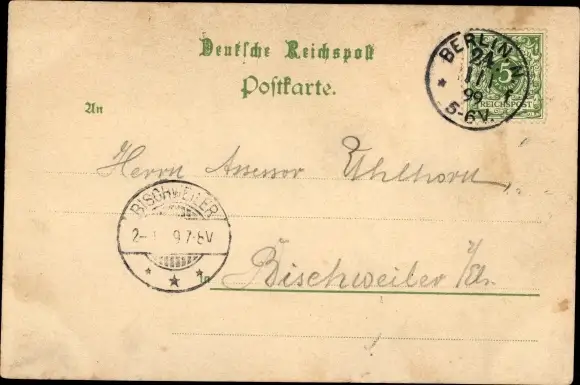 Deutsche Reichspost
Postkarte.
An
BERLIN N
5
REICHSPOST
99
5-6V.
Herrn Assessor Uhlhorn
BISCHWEILER
7-8V
In Bischweiler i/Els.